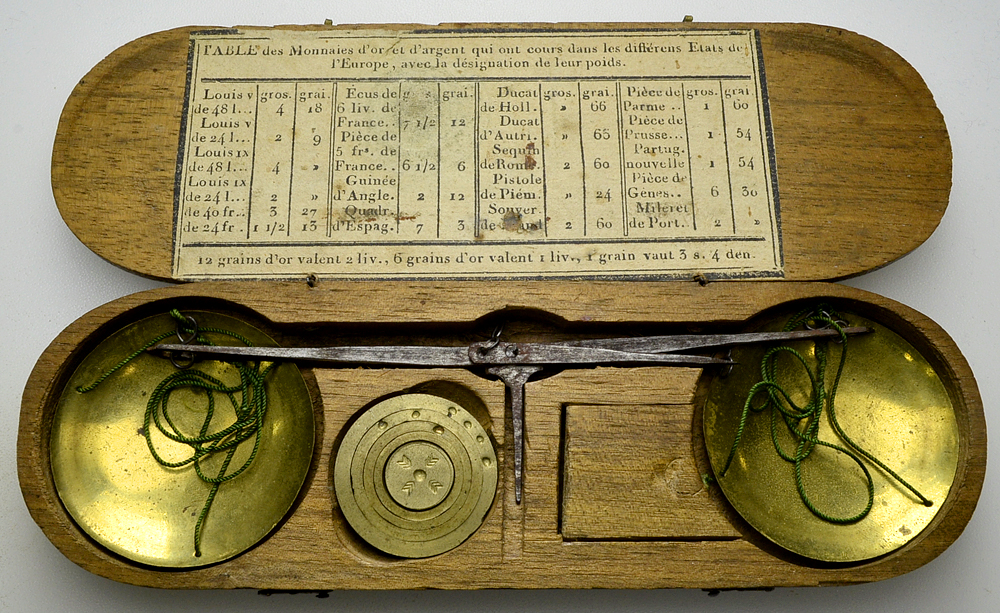 TABLE des Monnaies d'or et d'argent qui ont cours dans les différens Etats de
l'Europe, avec la désignation de leur poids.
Louis v gros. grai.
de 48 l... 4 18
Louis v
de 24 l... 2 9
Louis ix
de 48 l... 4 »
Louis ix
de 24 l... 2 »
de 40 fr.. 3 27
de 24 fr.. 1 1/2 13
Écus de grai.
6 liv. de
France.. 7 1/2 12
Pièce de
5 frs. de
France.. 6 1/2 6
Guinée
d'Angle. 2 12
Quadr.
d'Espag. 7 3.
Ducat gros. grai.
de Holl. » 66
Ducat
d'Autri. » 65
Sequin
de Rome. 2 60
Pistole
de Piém. » 24
Souver.
2 60
Pièce de gros. grai.
Parme.. 1 60
Pièce de
Prusse... 1 54
Portug.
nouvelle 1 54
Pièce de
Gênes.. 6 30
Milèret
de Port.. 2 »
12 grains d'or valent 2 liv., 6 grains d'or valent 1 liv., 1 grain vaut 3 s. 4 den.